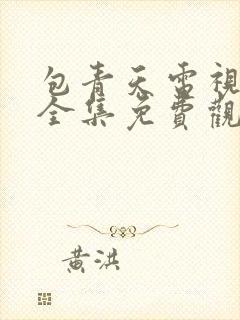 包青天電視
全集免費觀
黃洪